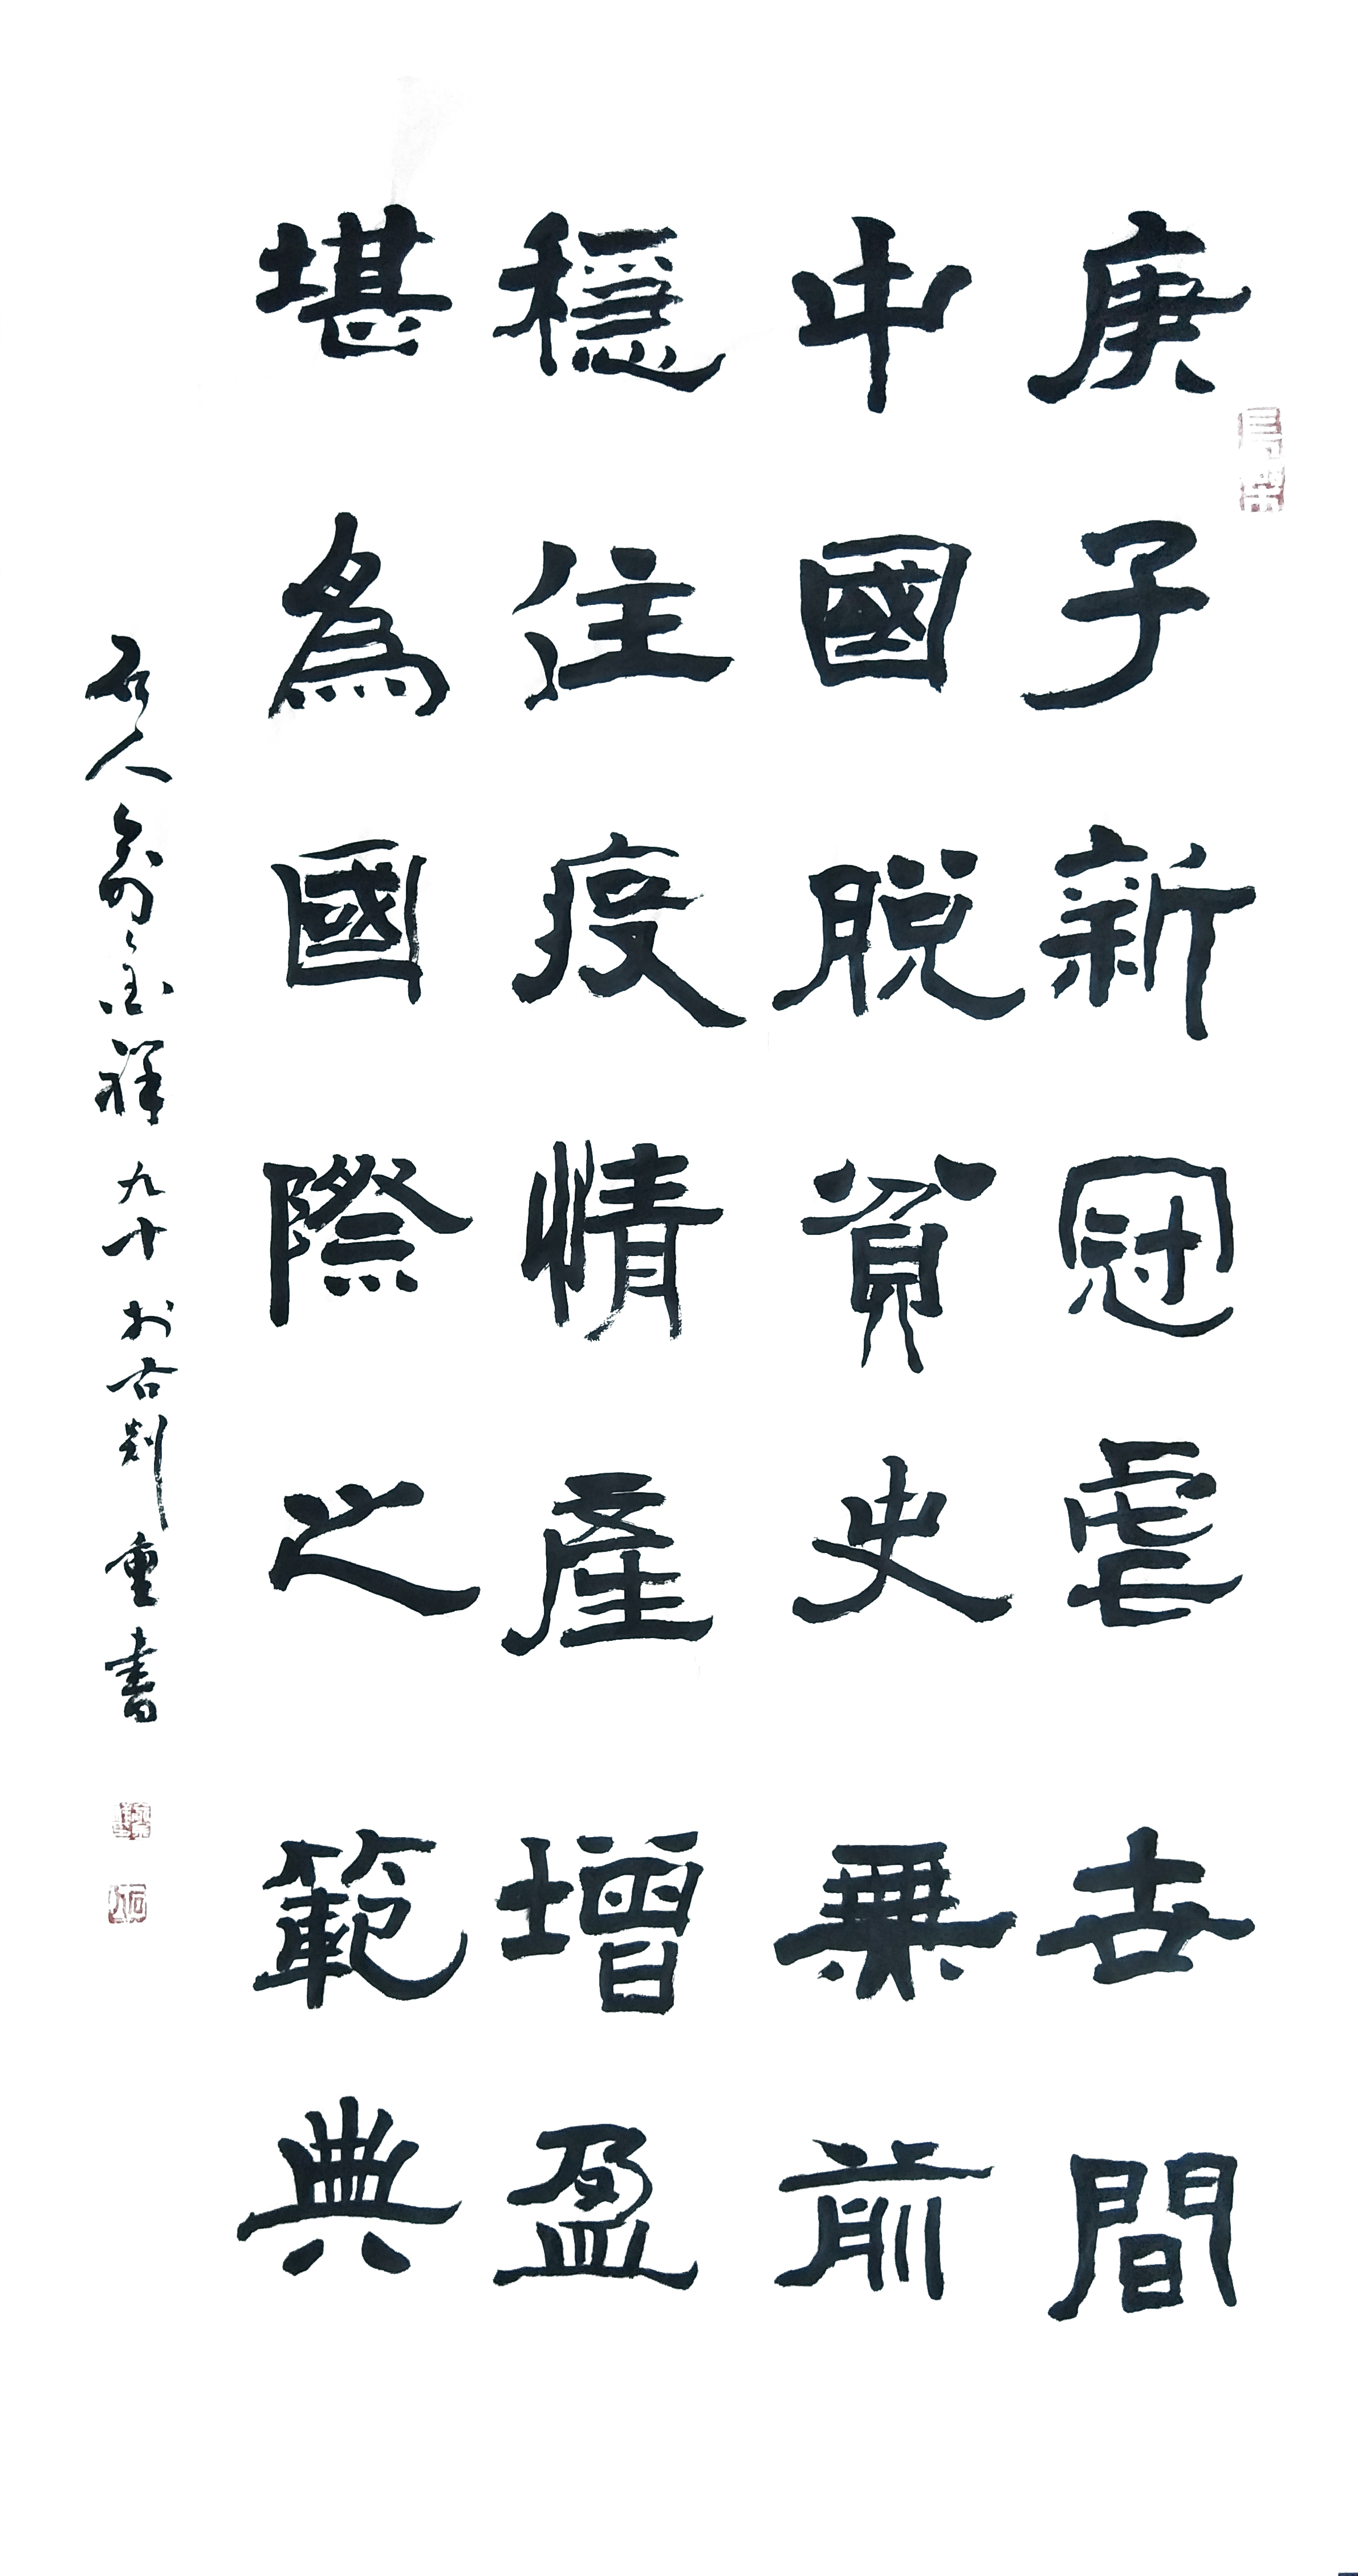 庚子新冠虐世間
中國脫貧史無前
穩住疫情產增盈
堪為國際之範典
石人俞金祥九十於古剡重書